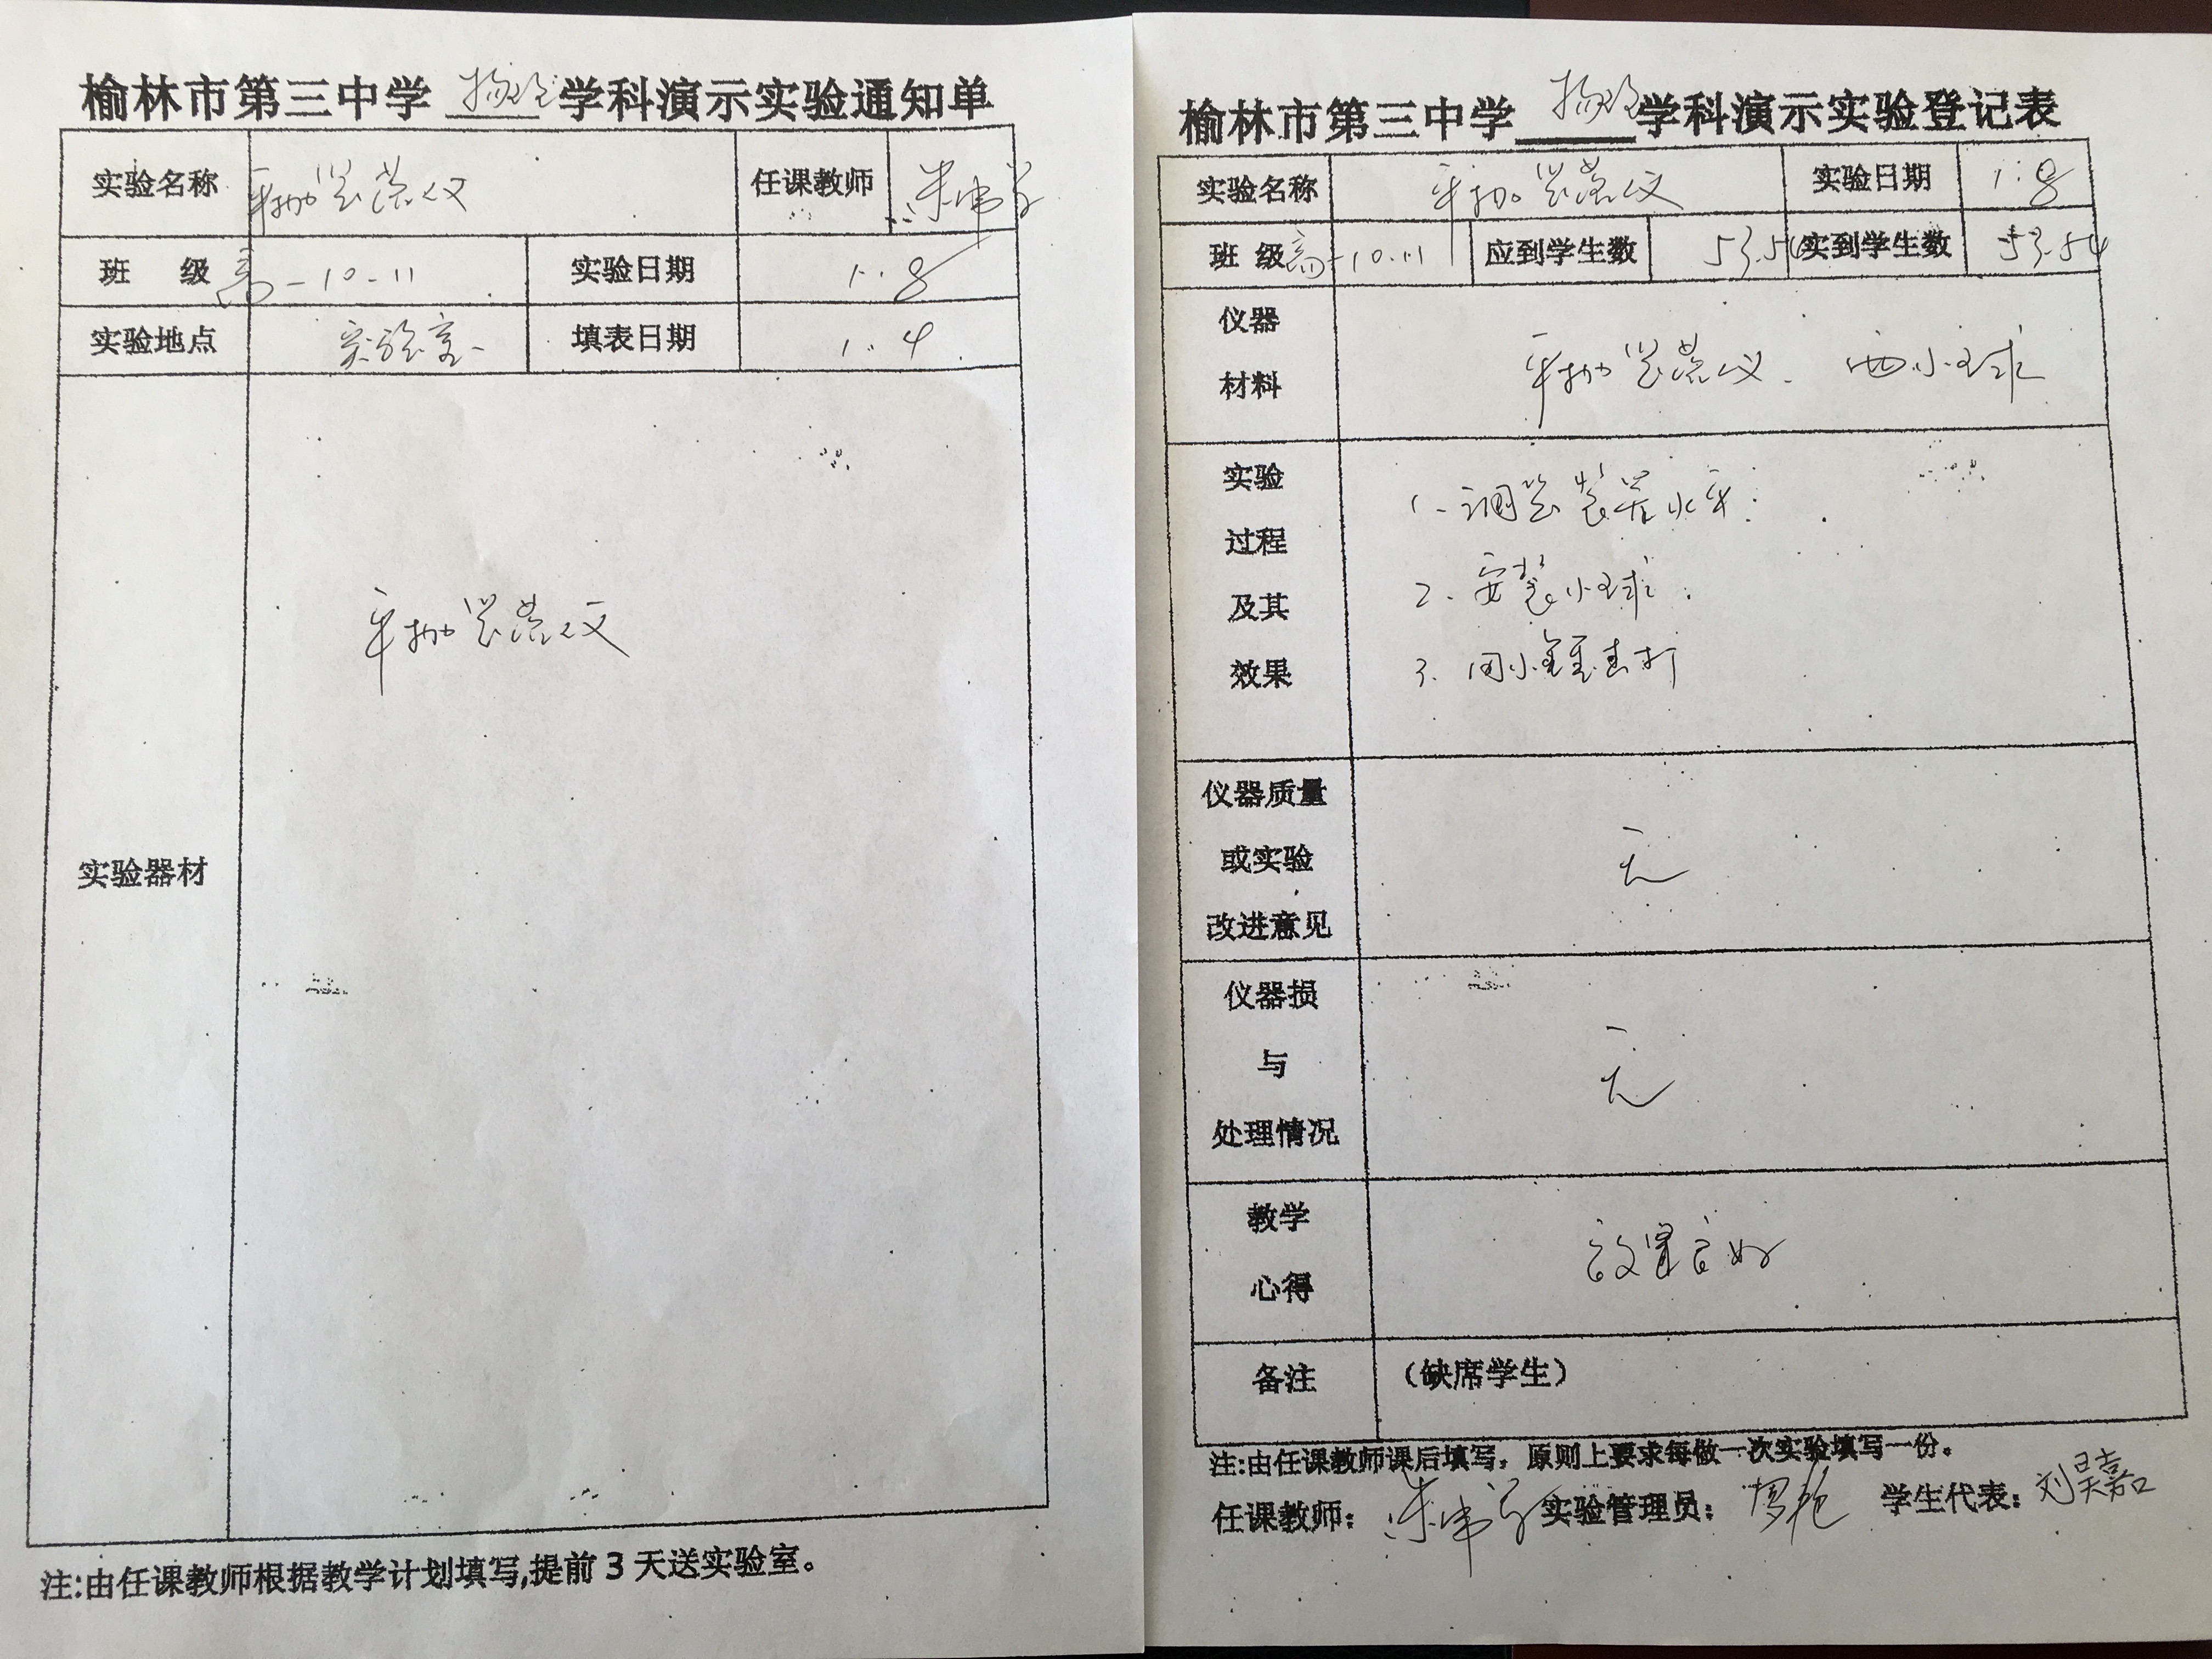 榆林市第三中学 物理 学科演示实验通知单
实验名称 平抛竖落仪 任课教师
班 级 高一10.11 实验日期 1.8
实验地点 实验室一 填表日期 1.4
实验器材 平抛竖落仪
注:由任课教师根据教学计划填写,提前3天送实验室。
榆林市第三中学 物理 学科演示实验登记表
实验名称 平抛竖落仪 实验日期 1.8
班 级 高一10.11 应到学生数 53.54 实到学生数 53.54
仪器
材料
平抛竖落仪、两小球
实验
过程
及其
效果
1、调竖装置水平.
2、安装小球.
3、用小锤击打
仪器质量
或实验
改进意见
无
仪器损
与
处理情况
无
教学
心得
效果良好
备注 (缺席学生)
注:由任课教师课后填写，原则上要求每做一次实验填写一份。
任课教师: 实验管理员: 学生代表: 刘昊嘉